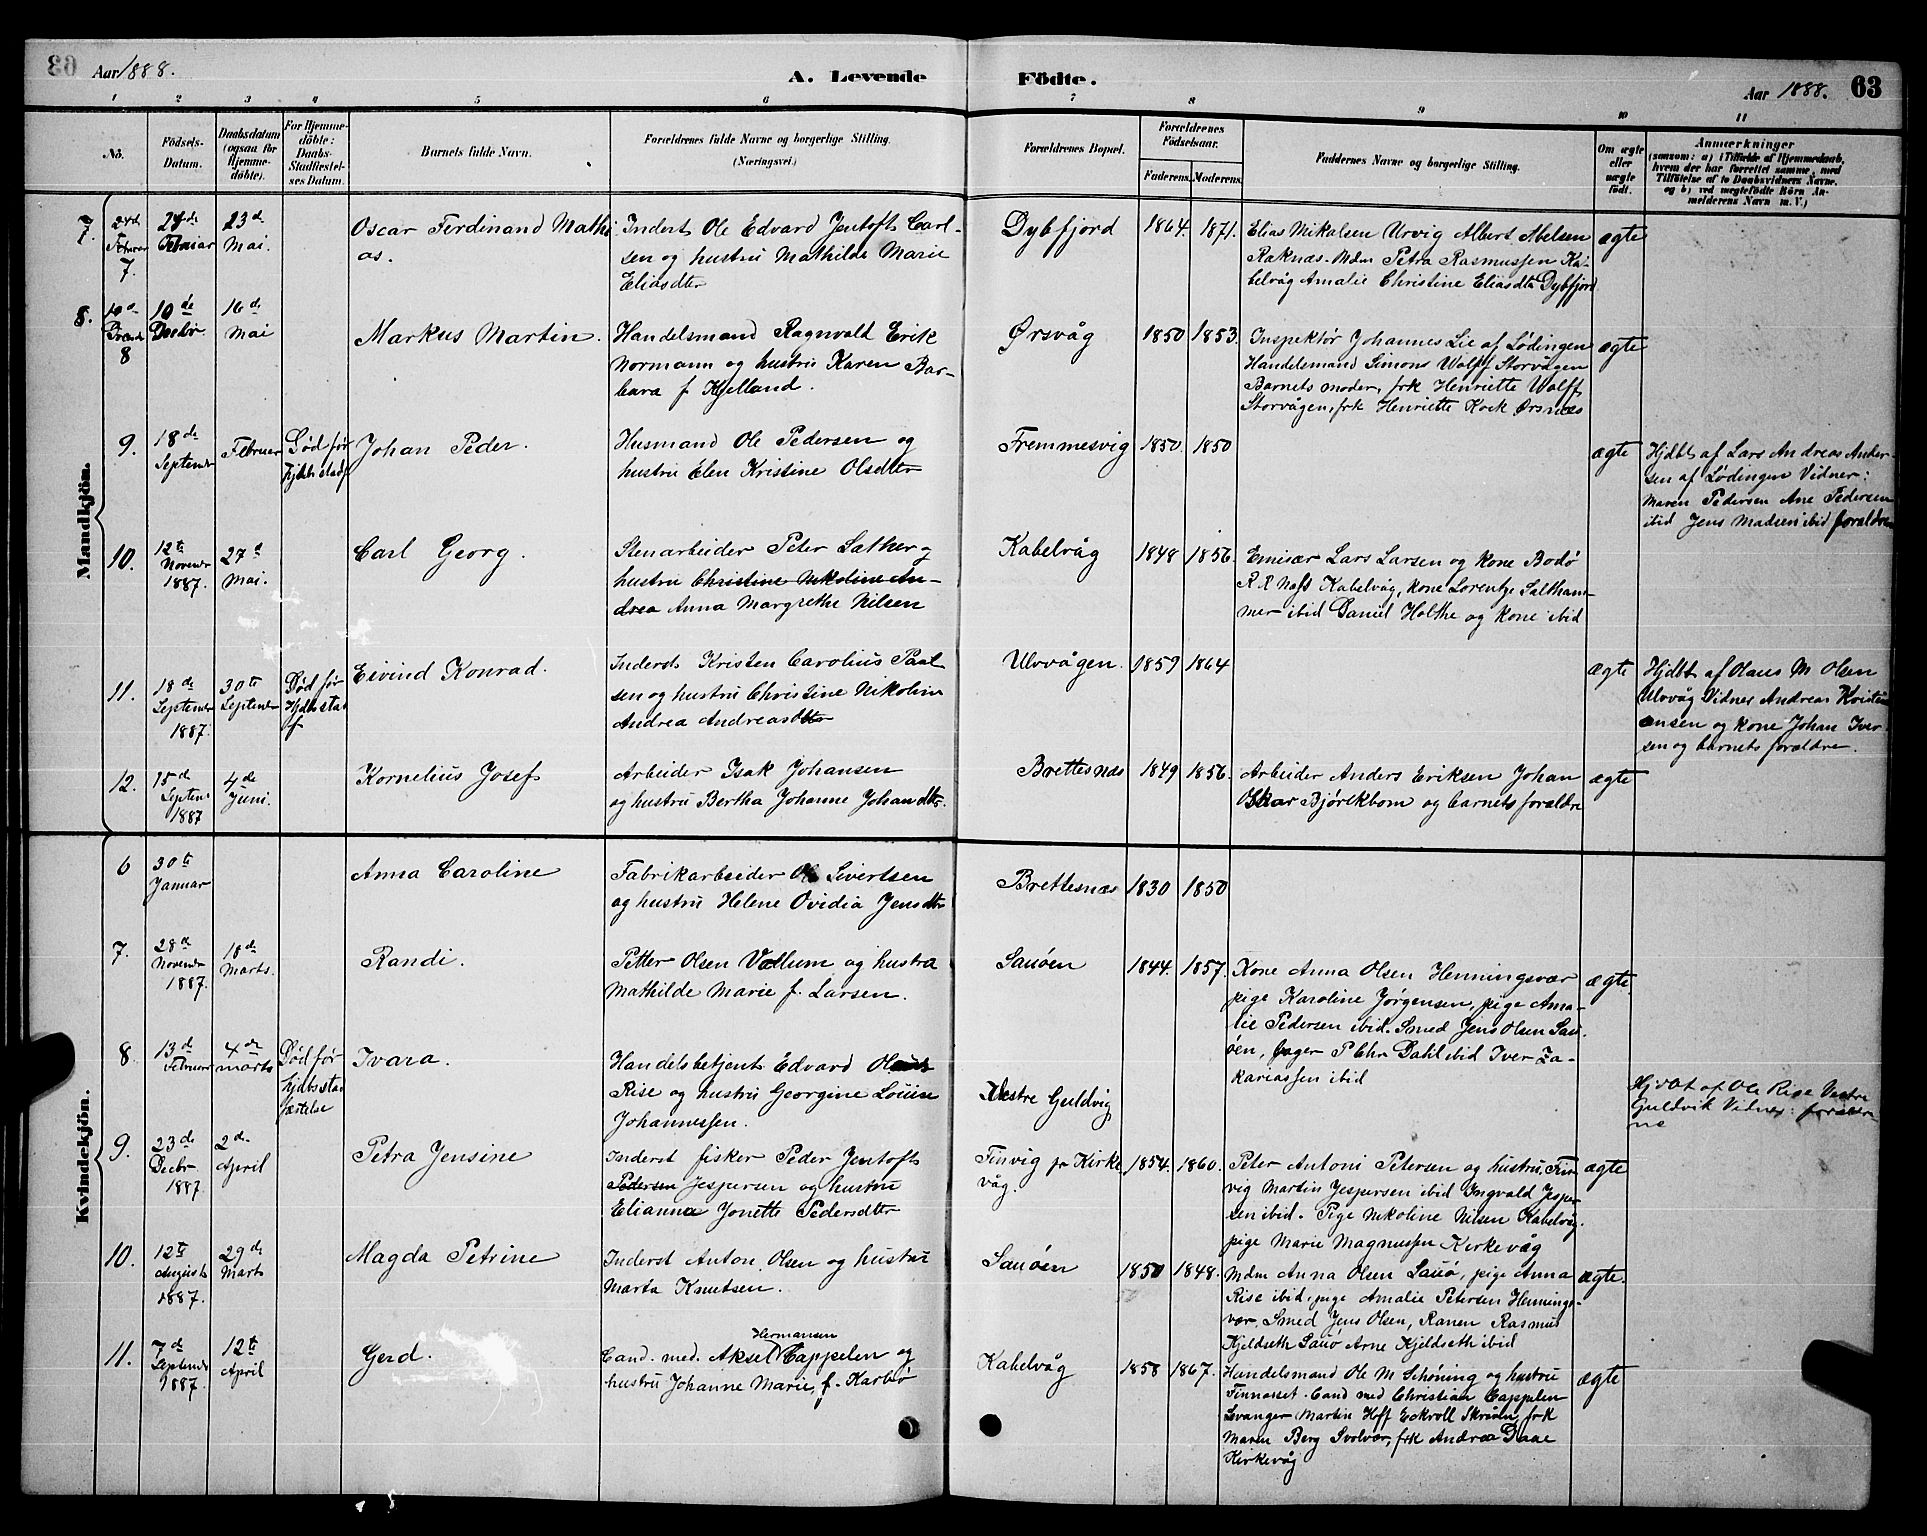 Aar 1888.
A. Levende
Födte.
Aar 1888. 63
1 2 3 4 5 6 7 8 9 10 11
No.
Födsels-
Datum.
Daabsdatum
(ogsaa for
Hjemme-
döbte).
For Hjemme-
döbte:
Daabs-
Stadfæstel-
ses Datum.
Barnets fulde Navn.
Forældrenes fulde Navne og borgerlige Stilling.
(Næringsvei.)
Forældrenes Bopæl.
Forældrenes
Födselsaar.
Faderens. Moderens.
Faddernes Navne og borgerlige Stilling.
Om ægte
eller
uægte
födt.
Anmærkninger
(saasom: a) i Tilfælde af Hjemmedaab,
hvem der har forrettet samme, med
Tilföielse af to Daabsvidners Navne,
og b) ved uegtefödte Börn An-
melderens Navn m. V.)
Mandkjön.
7. 24de Februar 23de Mai. Oscar Ferdinand Mathi
as.
Inderst Ole Edvard Jentoft Carl-
sen og hustru Mathilde Marie
Eliasdtr
Dybfjord 1864. 1871.
Elias Mikalsen Urvig Albert Abelsen
Raknæs. Mdm Petra Rasmussen Ka-
belvåg Amalie Christine Eliasdtr Dybfjord
ægte
8. 10de Decbr 16de Mai Markus Martin.
Handelsmand Ragnvald Erik
Normann og hustru Karen Bar-
bara f. Kjelland.
Ørsvåg 1850 1853.
Inspektør Johannes Lie af Lødingen
Handelsmand Simons Wolff Storvågen
Barnets moder, frk Henriette Wolff
Storvågen, frk Henriette Kock Ørsnæs
ægte
9. 18de September Februar Død før
Johan Peder.
Husmand Ole Pedersen og
hustru Elen Kristine Olsdtr
Fremmesvig 1850. 1850
ægte
Hjdbt af Lars Andreas Ander-
sen af Lødingen Vidner:
Maren Pedersen Ane Pedersen
ibid Jens Madsen ibid forældre
10. 12te Novembr 1887. 27d Mai. Carl Georg.
Stenarbeider Peter Sather og
hustru Christine Nikoline An-
drea Anna Margrethe Nilsen
Kabelvåg 1848 1856.
Emisær Lars Larsen og kone Bodø
R. R Næss Kabelvåg, kone Lorentze Saltham-
mer ibid Daniel Holthe og kone ibid
11. 18de September 1887. 30te September Død før
Eivind Konrad.
Inderst Kristen Carolius Paul
sen og hustru Christine Nikoline
Andrea Andreasdtr
Ulvvågen. 1859 1864
ægte
Hjdbt af Olaus M Olsen
Ulvvåg Vidner Andreas Kristi
ansen og kone Johan Iver-
sen og barnets forældre.
12. 15de Septemb 1887 4de Juni. Kornelius Josef
Arbeider Isak Johansen
og hustru Bertha Johanne Johandtr.
Brettesnæs 1849 1856.
Arbeider Anders Eriksen Johan
Oskar Bjørckbom og barnets forældre
ægte
Kvindekjön.
6 30te Januar Anna Caroline
Fabrikarbeider Ole Sivertsen
og hustru Helene Ovidia Jensdtr
Brettesnæs 1830 1850
7. 28de Novembr 1887. 18de Marts. Randi.
Petter Olsen Vollum og hustru
Mathilde Marie f. Larsen.
Sauøen 1844. 1857.
Kone Anna Olsen Henningsvær
pige Karoline Jørgensen, pige Ama-
lie Pedersen ibid. Smed Jens Olsen Sau-
øen, P Chr Dahl ibid Iver Za-
kariassen ibid
ægte.
8. 13de Februar 4de marts Død før
Ivara.
Handelsbetjent Edvard
Rise og hustru Georgine Louise
Johannessen.
Vestre Guldvig
Hjdbt af Ole Rise Vestre
Guldvik Vidner: forældre
ne
9. 23de Decbr 1887. 2de April Petra Jensine
Inderst fisker Peder Jentoft
Pedersen Jespersen og hustru
Elianna Jonette Pedersdtr
Finvig pr Kirke
våg. 1854. 1860.
Peter Antoni Petersen og hustru, Fin-
vig Martin Jespersen ibid Ingvald Jesper-
sen ibid. Pige Nikoline Nilsen Kabelvåg.
pige Marie Magnussen Kirkevåg
ægte
10. 12te August 1887. 29de Marts Magda Petrine
Inderst Anton Olsen og hustru
Marta Knutsen.
Sauøen 1850 1848.
Mdm Anna Olsen Sauø, pige Anna
Rise ibid, pige Amalie Petersen Hennings-
vær, Smed Jens Olsen, Ranen Rasmus
Kjeldseth Sauø Arne Kjeldseth ibid
ægte.
11. 7de September 1887. 12te April Gerd.
Hermansen
Cand. med. Aksel Cappelen og
hustru Johanne Marie f. Karbø
Kabelvåg 1858 1867.
Handelsmand Ole M Schøning og hustru
Finnæset. Cand med Christian Cappelen
Levanger Martin Hoff Eckroll Skråen, frk
Maren Berg Svolvær, frk Andrea Daae
Kirkevåg
ægte